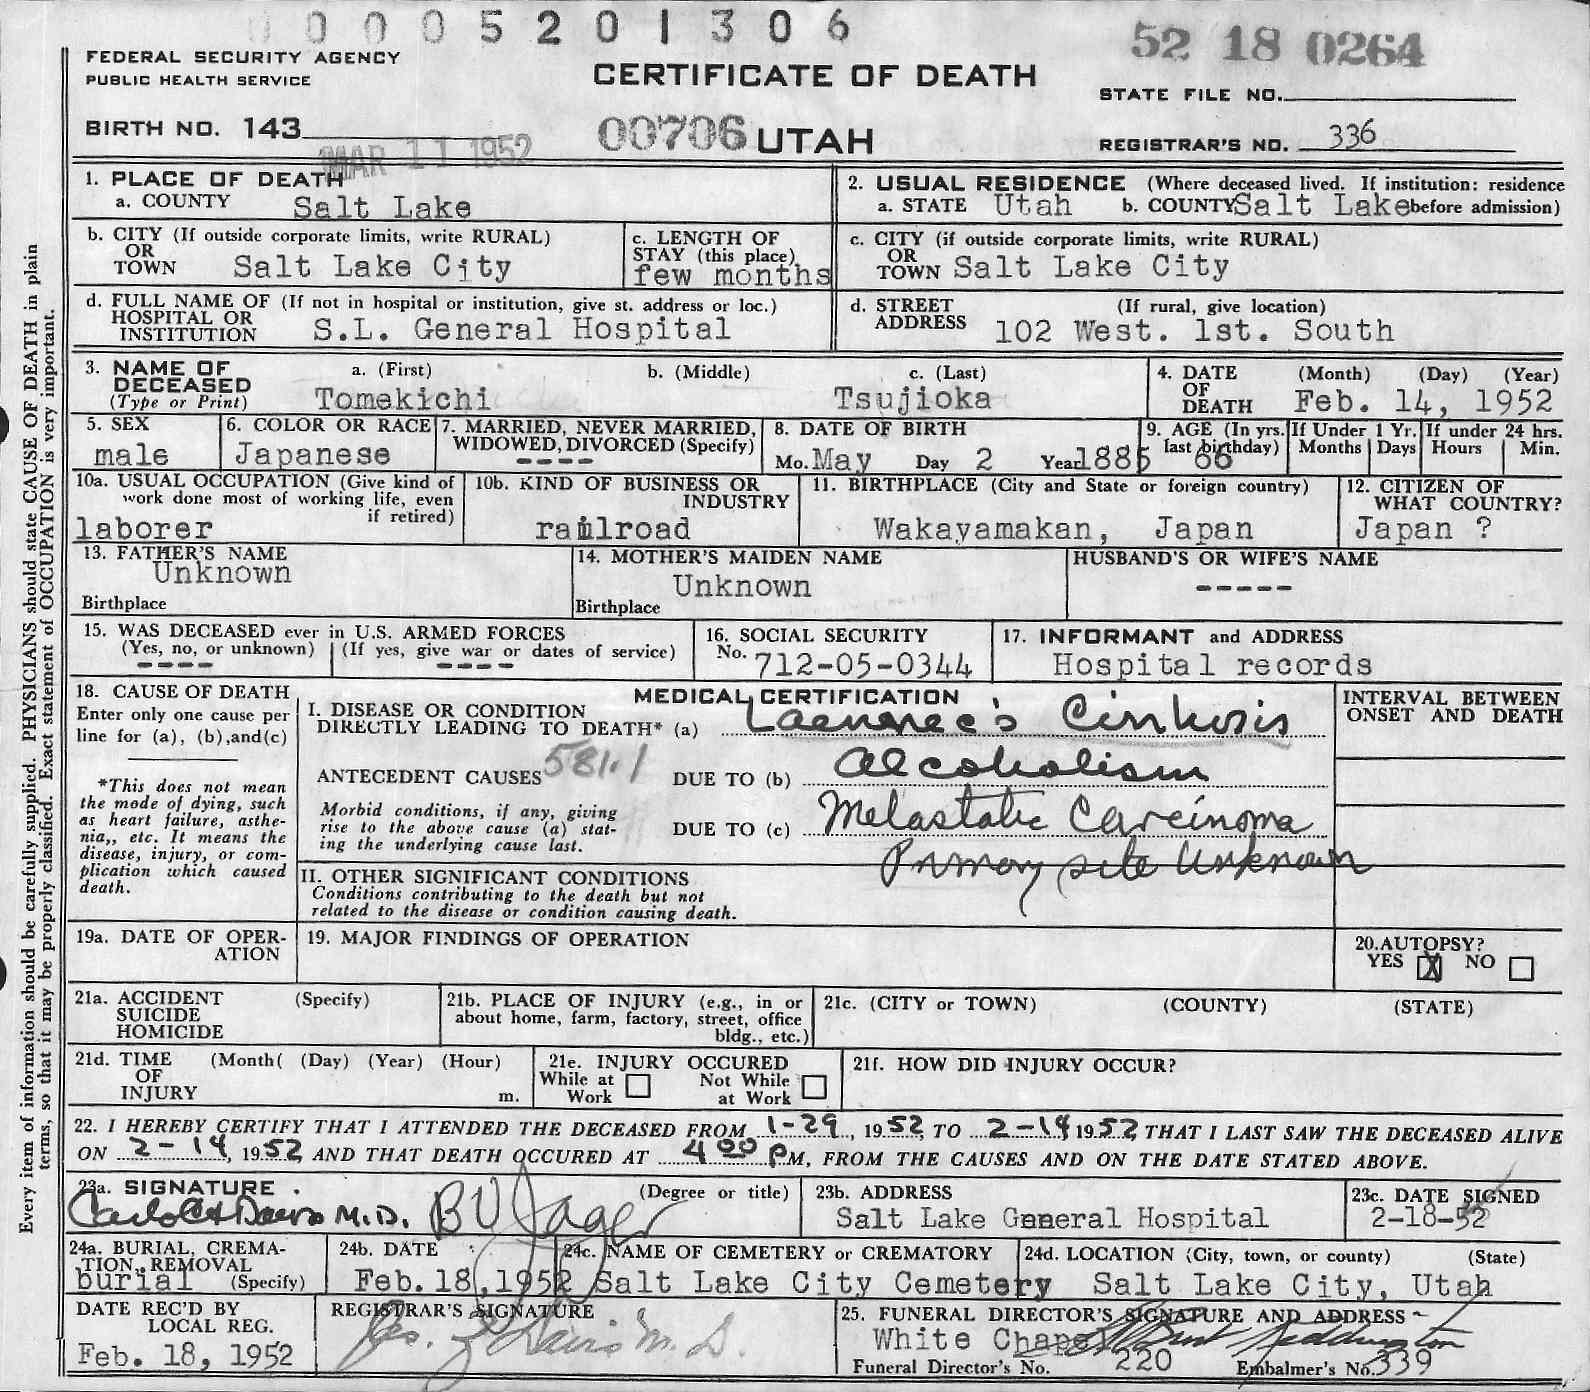 0 0 0 0 5 2 0 1 3 0 6
52 18 0264
FEDERAL SECURITY AGENCY
PUBLIC HEALTH SERVICE
CERTIFICATE OF DEATH
STATE FILE NO.
BIRTH NO. 143
00706 UTAH
REGISTRAR'S NO. 336
MAR 11 1952
1. PLACE OF DEATH
a. COUNTY Salt Lake
2. USUAL RESIDENCE (Where deceased lived. If institution: residence
a. STATE Utah b. COUNTY Salt Lake before admission)
b. CITY (If outside corporate limits, write RURAL)
OR
TOWN Salt Lake City
c. LENGTH OF
STAY (this place)
few months
c. CITY (if outside corporate limits, write RURAL)
OR
TOWN Salt Lake City
d. FULL NAME OF (If not in hospital or institution, give st. address or loc.)
HOSPITAL OR
INSTITUTION S.L. General Hospital
d. STREET (If rural, give location)
ADDRESS 102 West. 1st. South
3. NAME OF a. (First) b. (Middle) c. (Last)
DECEASED
(Type or Print) Tomekichi Tsujioka
4. DATE (Month) (Day) (Year)
OF
DEATH Feb. 14, 1952
5. SEX
male
6. COLOR OR RACE
Japanese
7. MARRIED, NEVER MARRIED,
WIDOWED, DIVORCED (Specify)
----
8. DATE OF BIRTH
Mo. May Day 2 Year 1885
9. AGE (In yrs.
last birthday)
66
If Under 1 Yr.
Months Days
If under 24 hrs.
Hours Min.
10a. USUAL OCCUPATION (Give kind of
work done most of working life, even
if retired)
laborer
10b. KIND OF BUSINESS OR
INDUSTRY
railroad
11. BIRTHPLACE (City and State or foreign country)
Wakayamakan, Japan
12. CITIZEN OF
WHAT COUNTRY?
Japan ?
13. FATHER'S NAME
Unknown
Birthplace
14. MOTHER'S MAIDEN NAME
Unknown
Birthplace
HUSBAND'S OR WIFE'S NAME
-----
15. WAS DECEASED ever in U.S. ARMED FORCES
(Yes, no, or unknown) (If yes, give war or dates of service)
---- ----
16. SOCIAL SECURITY
No. 712-05-0344
17. INFORMANT and ADDRESS
Hospital records
18. CAUSE OF DEATH
Enter only one cause per
line for (a), (b), and (c)
*This does not mean
the mode of dying, such
as heart failure, asthe-
nia,, etc. It means the
disease, injury, or com-
plication which caused
death.
MEDICAL CERTIFICATION
I. DISEASE OR CONDITION
DIRECTLY LEADING TO DEATH* (a) Laennec's Cirrhosis
ANTECEDENT CAUSES 581.1 DUE TO (b) Alcoholism
Morbid conditions, if any, giving
rise to the above cause (a) stat-
ing the underlying cause last.
DUE TO (c) Metastatic Carcinoma
Primary site Unknown
INTERVAL BETWEEN
ONSET AND DEATH
II. OTHER SIGNIFICANT CONDITIONS
Conditions contributing to the death but not
related to the disease or condition causing death.
19a. DATE OF OPER-
ATION
19. MAJOR FINDINGS OF OPERATION
20. AUTOPSY?
YES X NO
21a. ACCIDENT (Specify)
SUICIDE
HOMICIDE
21b. PLACE OF INJURY (e.g., in or
about home, farm, factory, street, office
bldg., etc.)
21c. (CITY or TOWN) (COUNTY) (STATE)
21d. TIME (Month( (Day) (Year) (Hour)
OF
INJURY m.
21e. INJURY OCCURED
While at Work
Not While at Work
21f. HOW DID INJURY OCCUR?
22. I HEREBY CERTIFY THAT I ATTENDED THE DECEASED FROM 1-29, 1952, TO 2-14 1952, THAT I LAST SAW THE DECEASED ALIVE
ON 2-14, 1952, AND THAT DEATH OCCURED AT 4 00 PM, FROM THE CAUSES AND ON THE DATE STATED ABOVE.
23a. SIGNATURE (Degree or title)
Davis M.D. B V Jager
23b. ADDRESS
Salt Lake General Hospital
23c. DATE SIGNED
2-18-52
24a. BURIAL, CREMA-
TION, REMOVAL
burial (Specify)
24b. DATE
Feb. 18, 1952
24c. NAME OF CEMETERY or CREMATORY
Salt Lake City Cemetery
24d. LOCATION (City, town, or county) (State)
Salt Lake City, Utah
DATE REC'D BY
LOCAL REG.
Feb. 18, 1952
REGISTRAR'S SIGNATURE
Davis M.D.
25. FUNERAL DIRECTOR'S SIGNATURE AND ADDRESS
White Chapel
Funeral Director's No. 220 Embalmer's No. 339
Every item of information should be carefully supplied. PHYSICIANS should state CAUSE OF DEATH in plain
terms, so that it may be properly classified. Exact statement of OCCUPATION is very important.